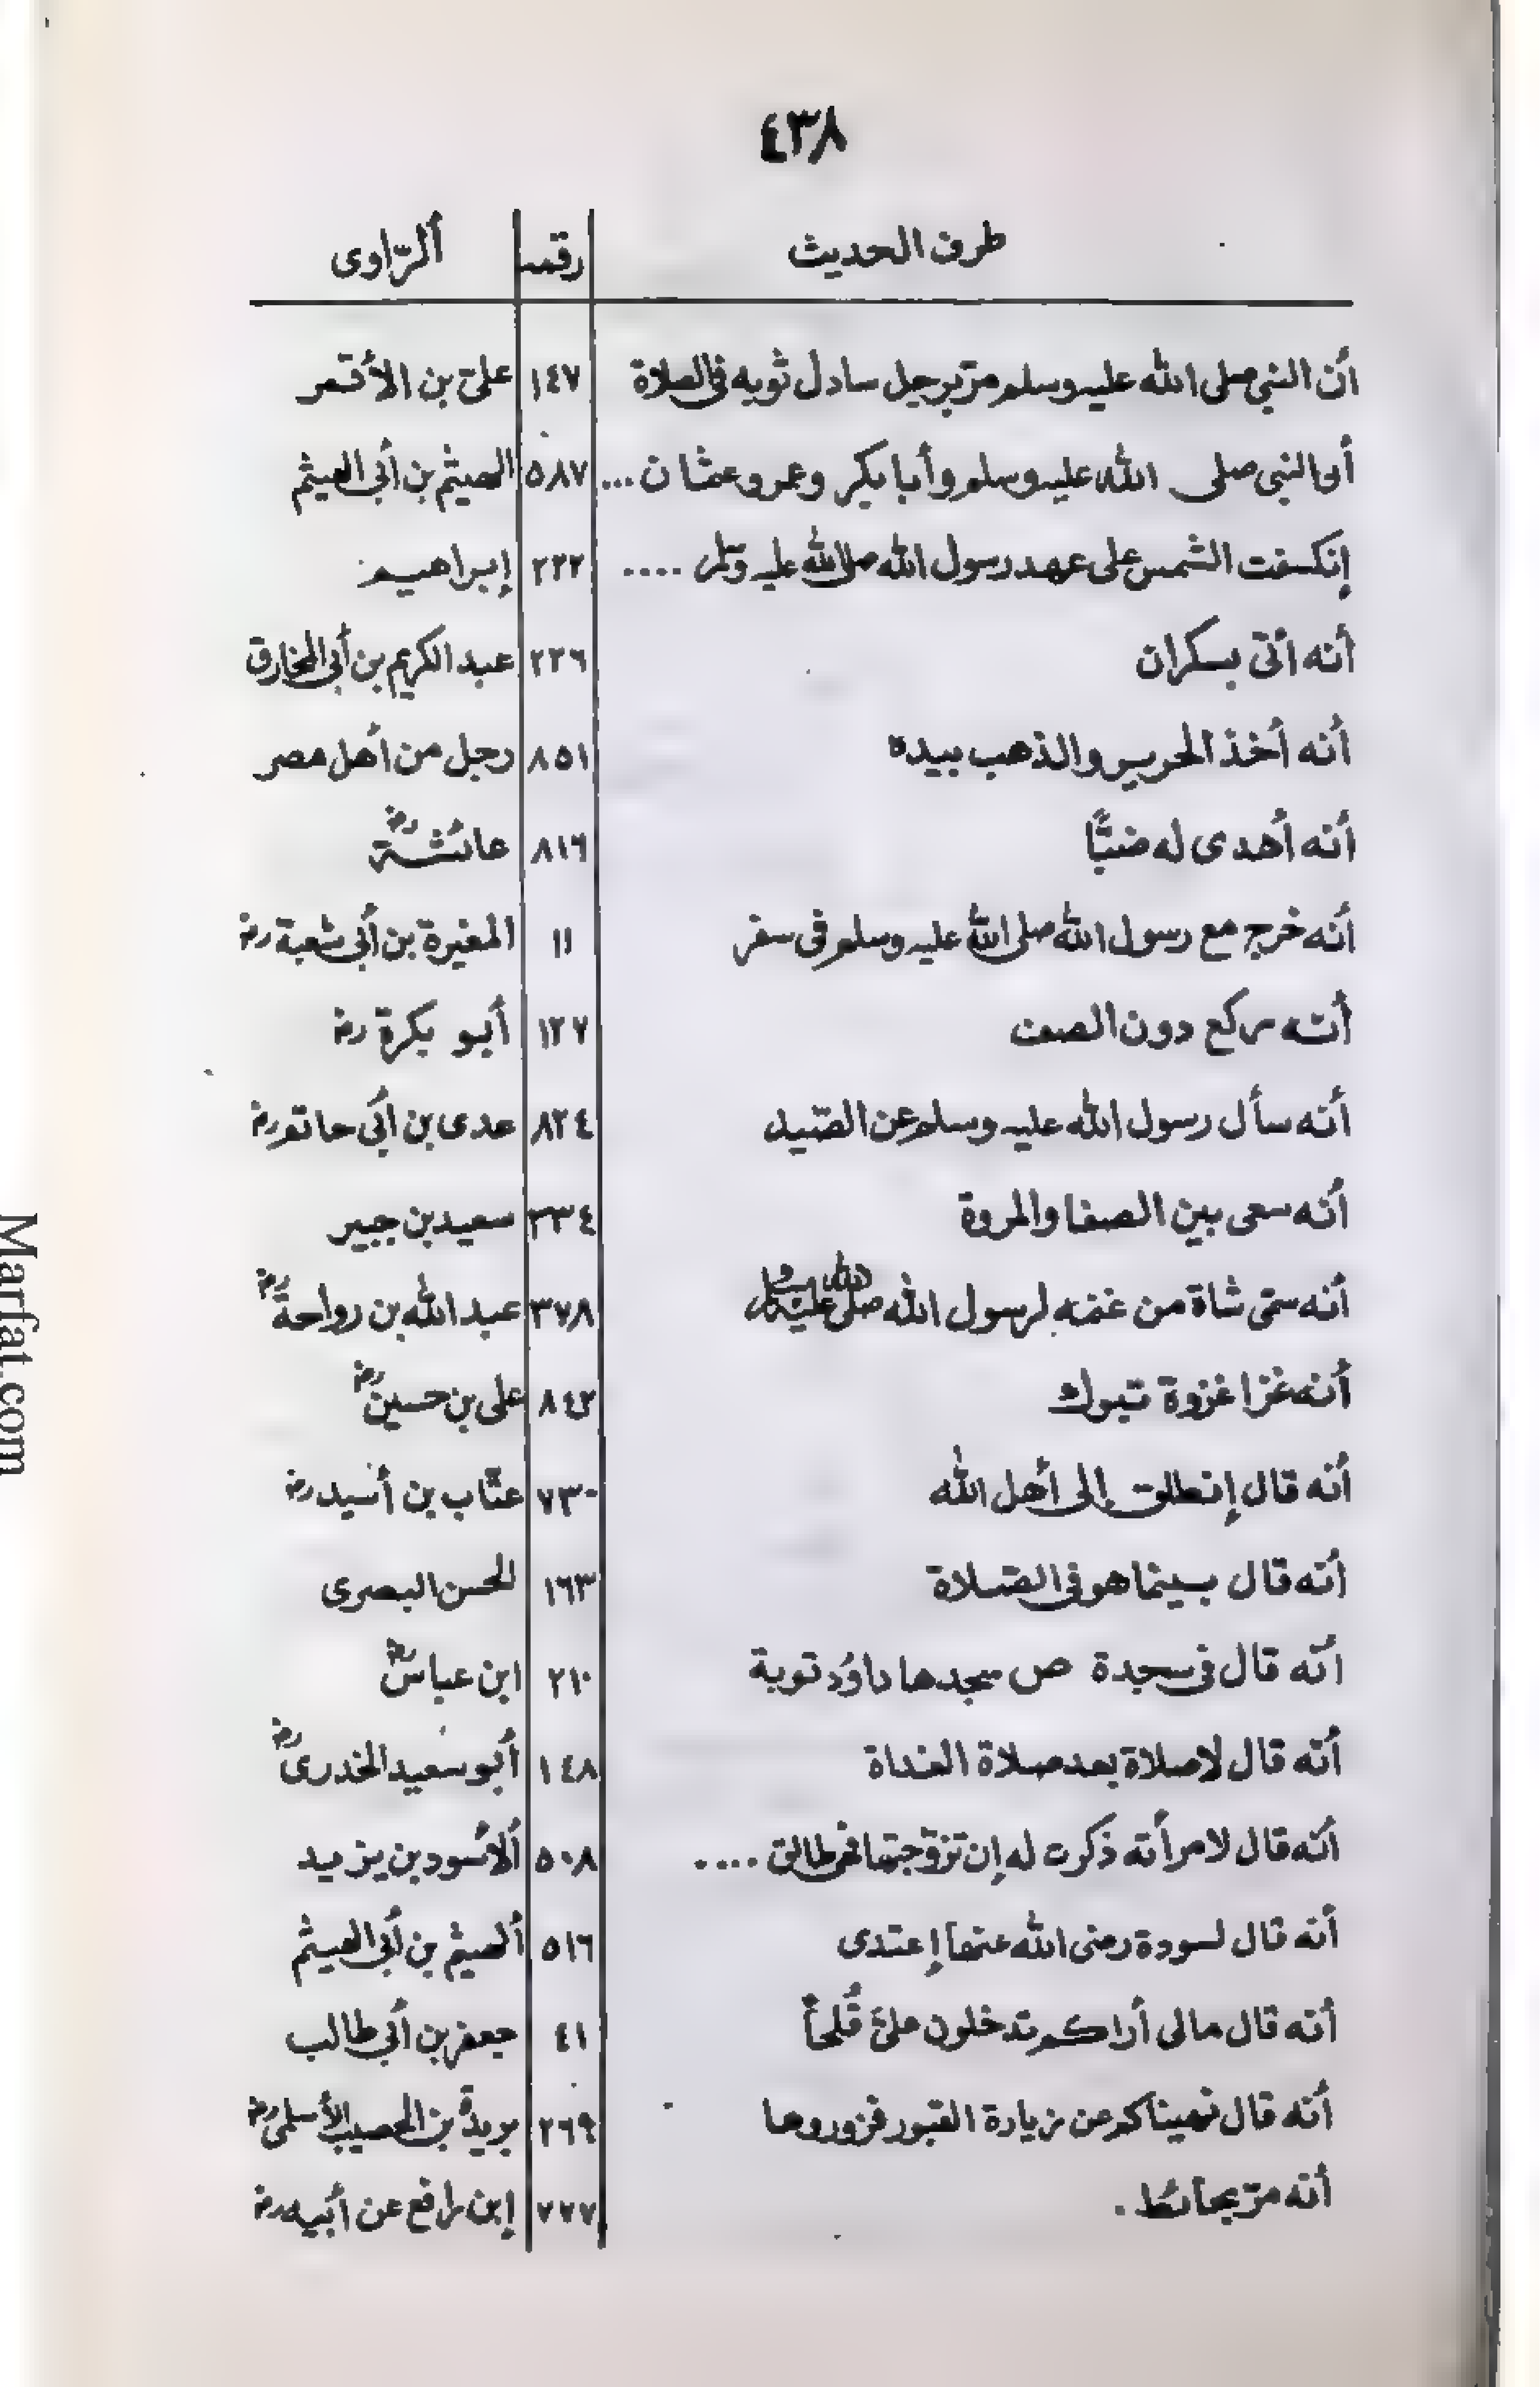 ٤٣٨
طرف الحديث | رقمه | ألرّاوى
أن النبي صلى الله عليه وسلم مرّ برجل سادل ثوبه في الصلاة | ١٤٧ | علىّ بن الأقمر
أن النبي صلى الله عليه وسلم وأبا بكر وعمر وعثمان ... | ٥٨٧ | الهيثم بن أبي الهيثم
إنكسفت الشمس على عهد رسول الله صلى الله عليه وسلم .... | ٢٢٢ | إبراهيم
أنه أتى بسكران | ٢٢٦ | عبد الكريم بن أبي المخارق
أنه أخذ الحرير والذهب بيده | ٨٥١ | رجل من أهل مصر
أنه أهدى له ضبًّا | ٨١٦ | عائشة رض
أنه خرج مع رسول الله صلى الله عليه وسلم فى سفر | ١١ | المغيرة بن أبي شعبة رض
أنه ركع دون الصف | ١٢٧ | أبو بكرة رض
أنه سأل رسول الله عليه وسلم عن الصّيد | ٨٢٤ | عدى بن أبي حاتم رض
أنه سعى بين الصفا والمروة | ٣٣٤ | سعيد بن جبير
أنه سمّى شاة من غنمه لرسول الله صلى الله عليه وسلم | ٣٧٨ | عبد الله بن رواحة رض
أنه غزا غزوة تبوك | ٨٤٢ | على بن حسين رض
أنه قال إنطلق إلى أهل الله | ٧٣٠ | عتّاب بن أسيد رض
أنه قال بينما هو في الصّلاة | ١٦٣ | الحسن البصرى
أنّه قال فى سجدة ص سجدها داوُد توبة | ٢١٠ | ابن عباس رض
أنّه قال لا صلاة بعد صلاة الغداة | ١٤٨ | أبو سعيد الخدرى رض
أنّه قال لامرأته ذكرت له إن تزوّجتها فهى طالق .... | ٥٠٨ | ألأسود بن يزيد
أنّه قال لسودة رضى الله عنها إعتدى | ٥١٦ | ألهيثم بن أبي الهيثم
أنّه قال مالى أراكم تدخلون علىّ قُلحاً | ٤١ | جعفر بن أبي طالب
أنّه قال نهيناكم عن زيارة القبور فزوروها | ٢٦٩ | بريدة بن الحصيب الأسلمى رض
أنّه مرّ بحائط . | ٧٧٧ | إبن رافع عن أبيه رض
Marfat.com